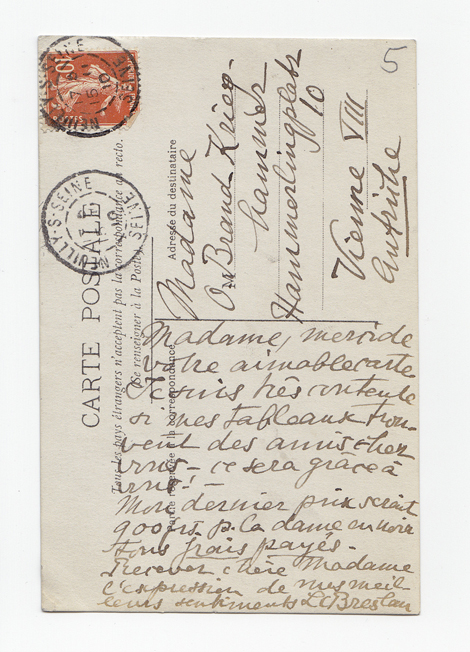 5
10
NEUILLY-S-SEINE
SEINE
CARTE POSTALE
Tous les pays étrangers n'acceptent pas la correspondance au recto.
(Se renseigner à la Poste).
Partie réservée à la correspondance
Adresse du destinataire
Madame
Brand-Krieg-
hammer
Hamerlingplatz
10
Vienne VIII
Autriche
Madame, merci de
votre aimable carte
Je suis très contente
si mes tableaux trou-
vent des amis chez
vous - ce sera grâce à
vous!
Mon dernier prix serait
900 frs p. la dame en noir
tous frais payés.
Recevez chère Madame
l'expression de mes meil
leurs sentiments LC Breslau